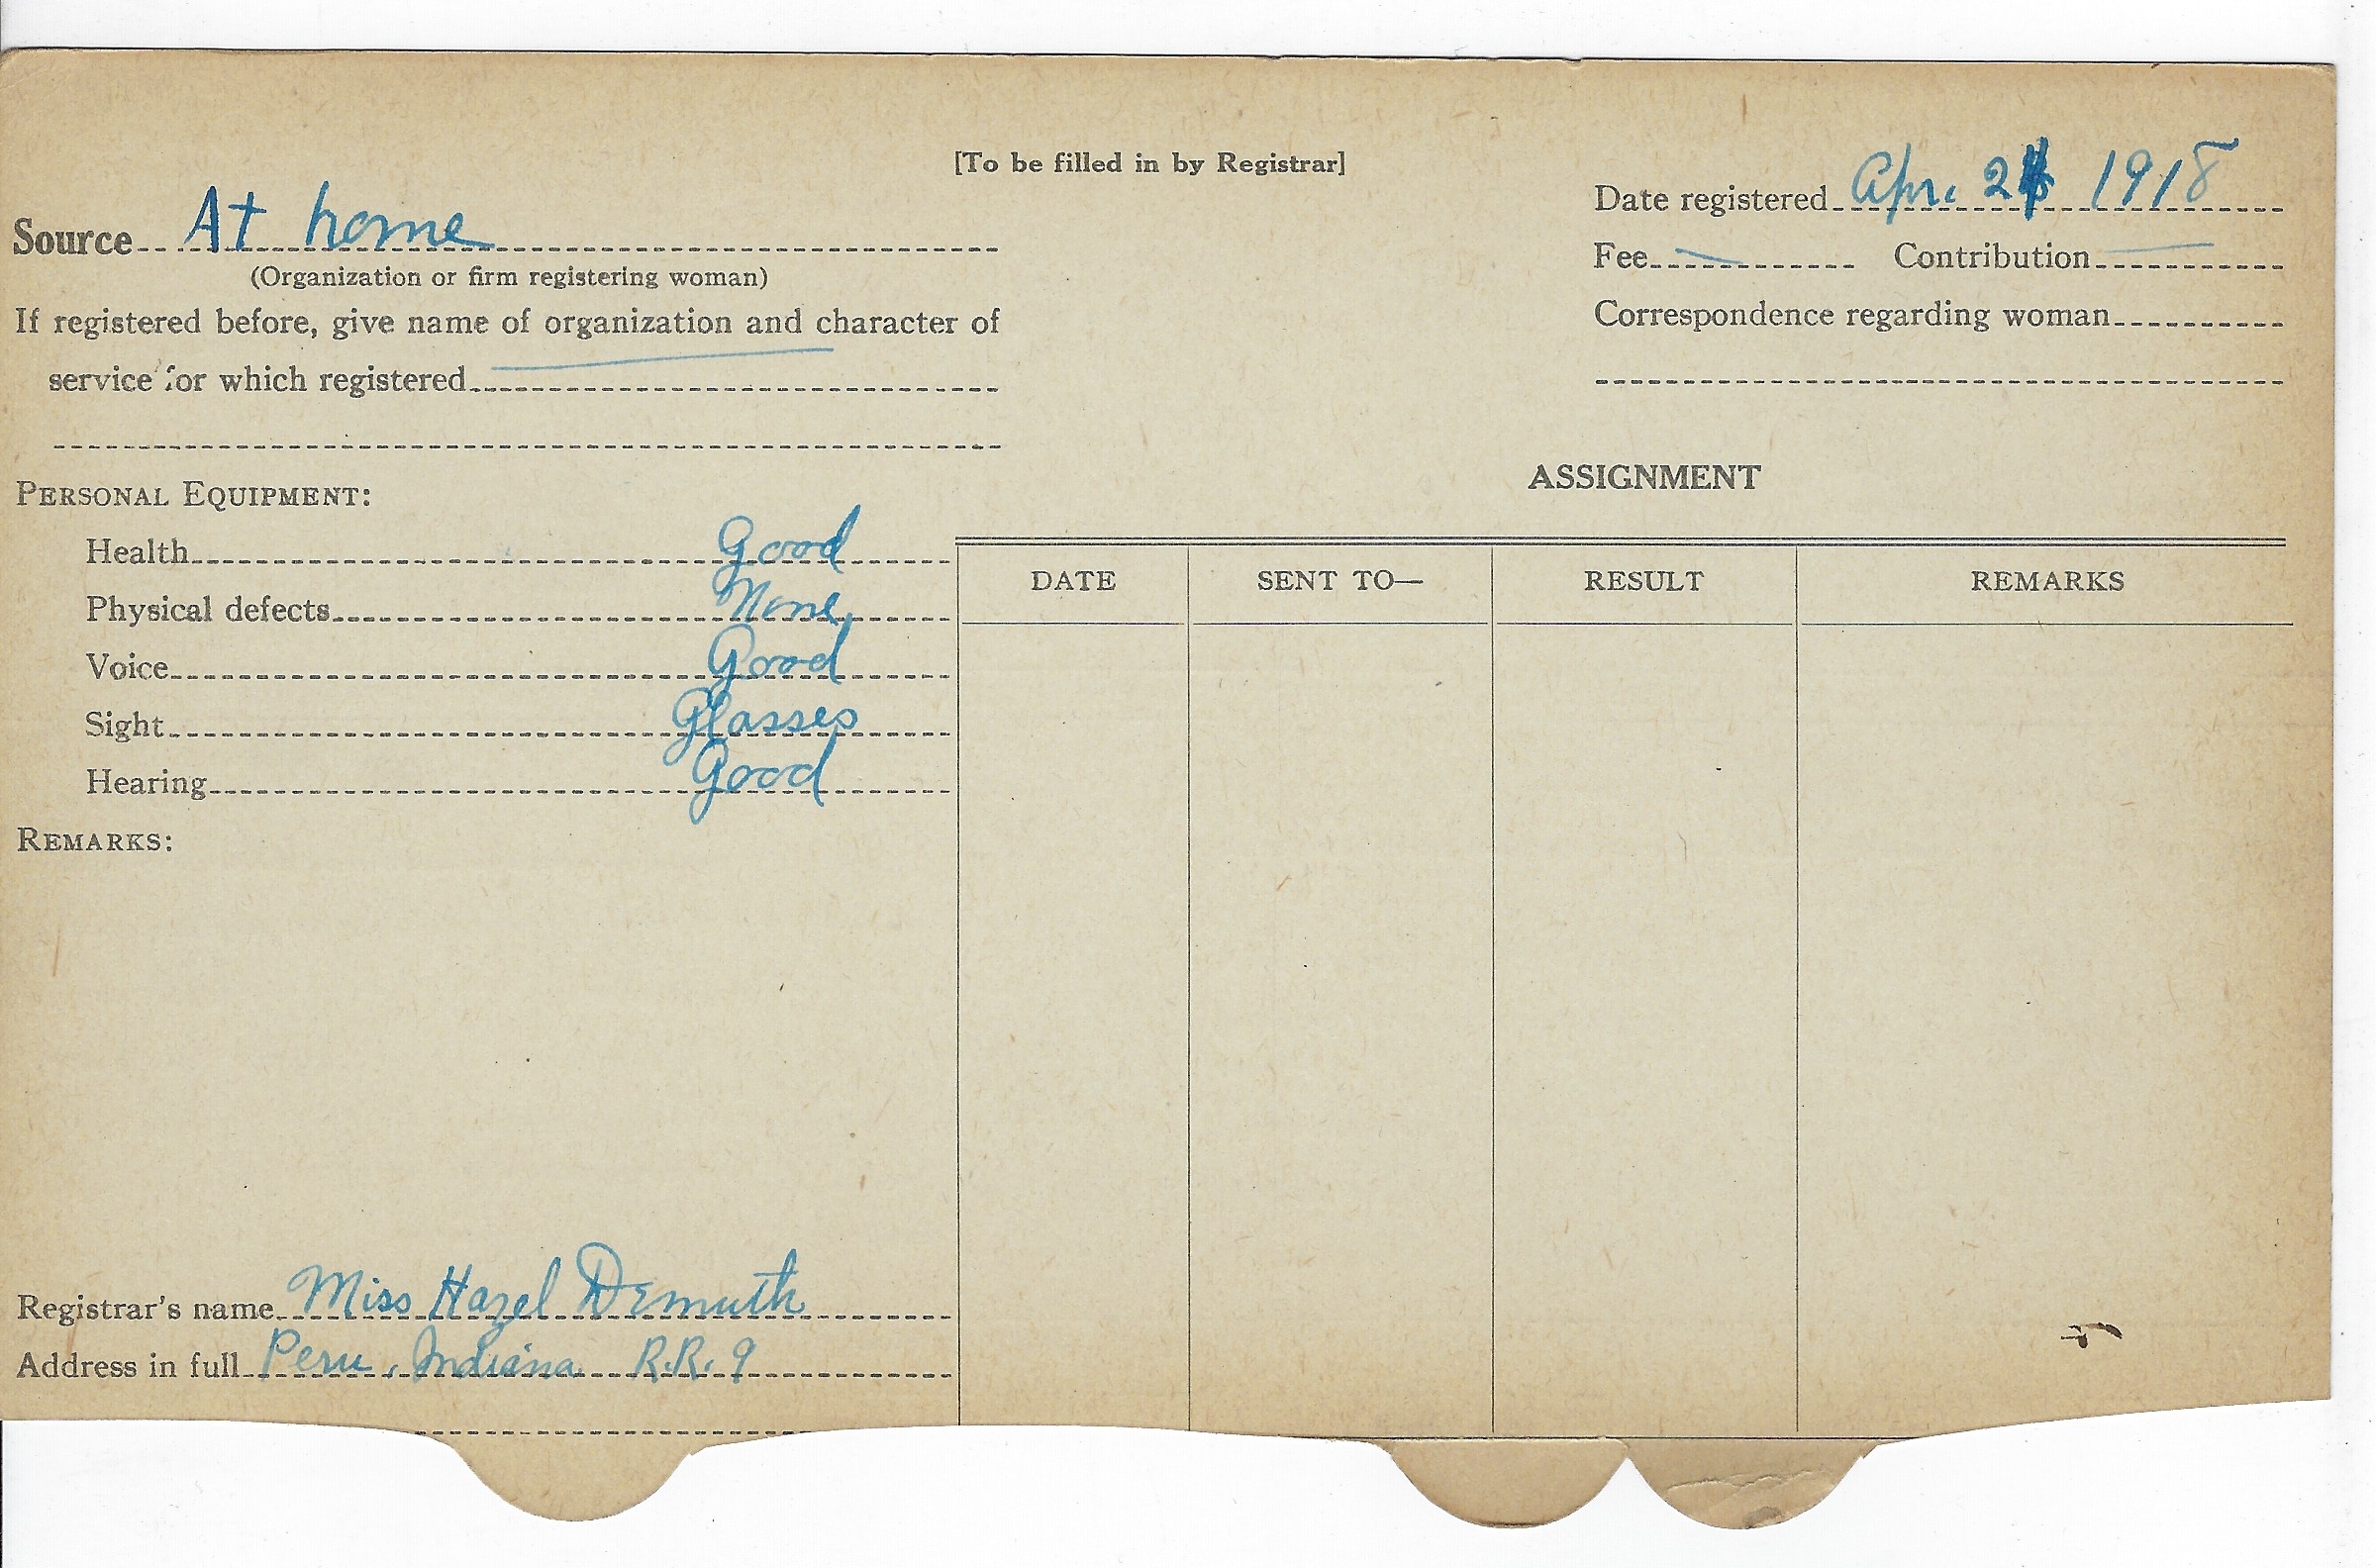 [To be filled in by Registrar]
Source At home
(Organization or firm registering woman)
If registered before, give name of organization and character of
service for which registered
Date registered Apr. 1918
Fee Contribution
Correspondence regarding woman
PERSONAL EQUIPMENT:
Health Good
Physical defects None
Voice Good
Sight Glasses
Hearing Good
REMARKS:
Registrar's name Miss Hazel Demuth
Address in full Peru, Indiana R.R. 9
ASSIGNMENT
DATE SENT TO— RESULT REMARKS